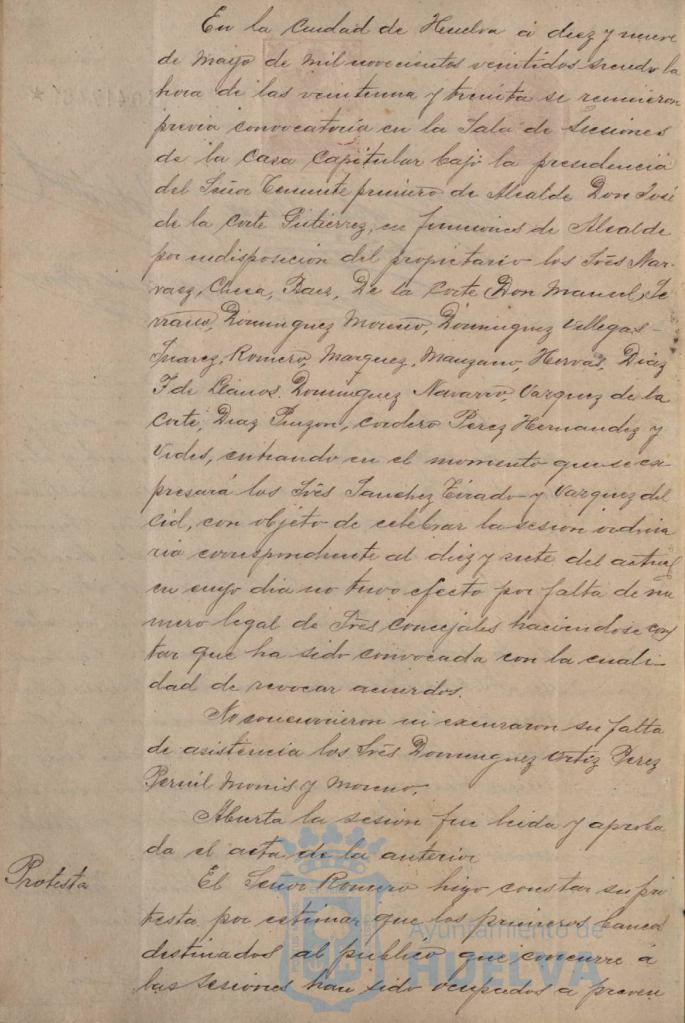 En la Ciudad de Huelva á diez y nueve
de Mayo de mil novecientos veintidos siendo la
hora de las veintiuna y treinta se reunieron
previa convocatoria en la Sala de Sesiones
de la Casa Capitular bajo la presidencia
del Señor Teniente primero de Alcalde Don José
de la Corte Gutierrez, en funciones de Alcalde
por indisposicion del propietario los Sres Nar-
vaez, Checa, Baez, De la Corte Don Manuel, Se
rrano, Dominguez Moreno, Dominguez Villegas-
Suarez, Romero, Marquez, Manzano, Hervas, Diaz
F de Llanos, Dominguez Navarro, Vazquez de la
Corte, Diaz Pinzon, Cordero Perez Hernandez y
Vides, entrando en el momento que se ex
presará los Sres Sanchez Tirado y Vazquez del
Cid, con objeto de celebrar la sesion ordina
ria correspondiente al diez y siete del actual
en cuyo dia no tuvo efecto por falta de nu
mero legal de Sres Concejales haciendose cons
tar que ha sido convocada con la cuali-
dad de revocar acuerdos.
No concurrieron ni excusaron su falta
de asistencia los Sres Dominguez Ortiz Perez
Monis y Moreno.
Abierta la sesion fue leida y aproba
da el acta de la anterior
Protesta
El Señor Romero hizo constar su pro
testa por estimar que los primeros bancos
destinados al publico que concurre á
las sesiones han sido ocupados a preven
Ayuntamiento de
HUELVA